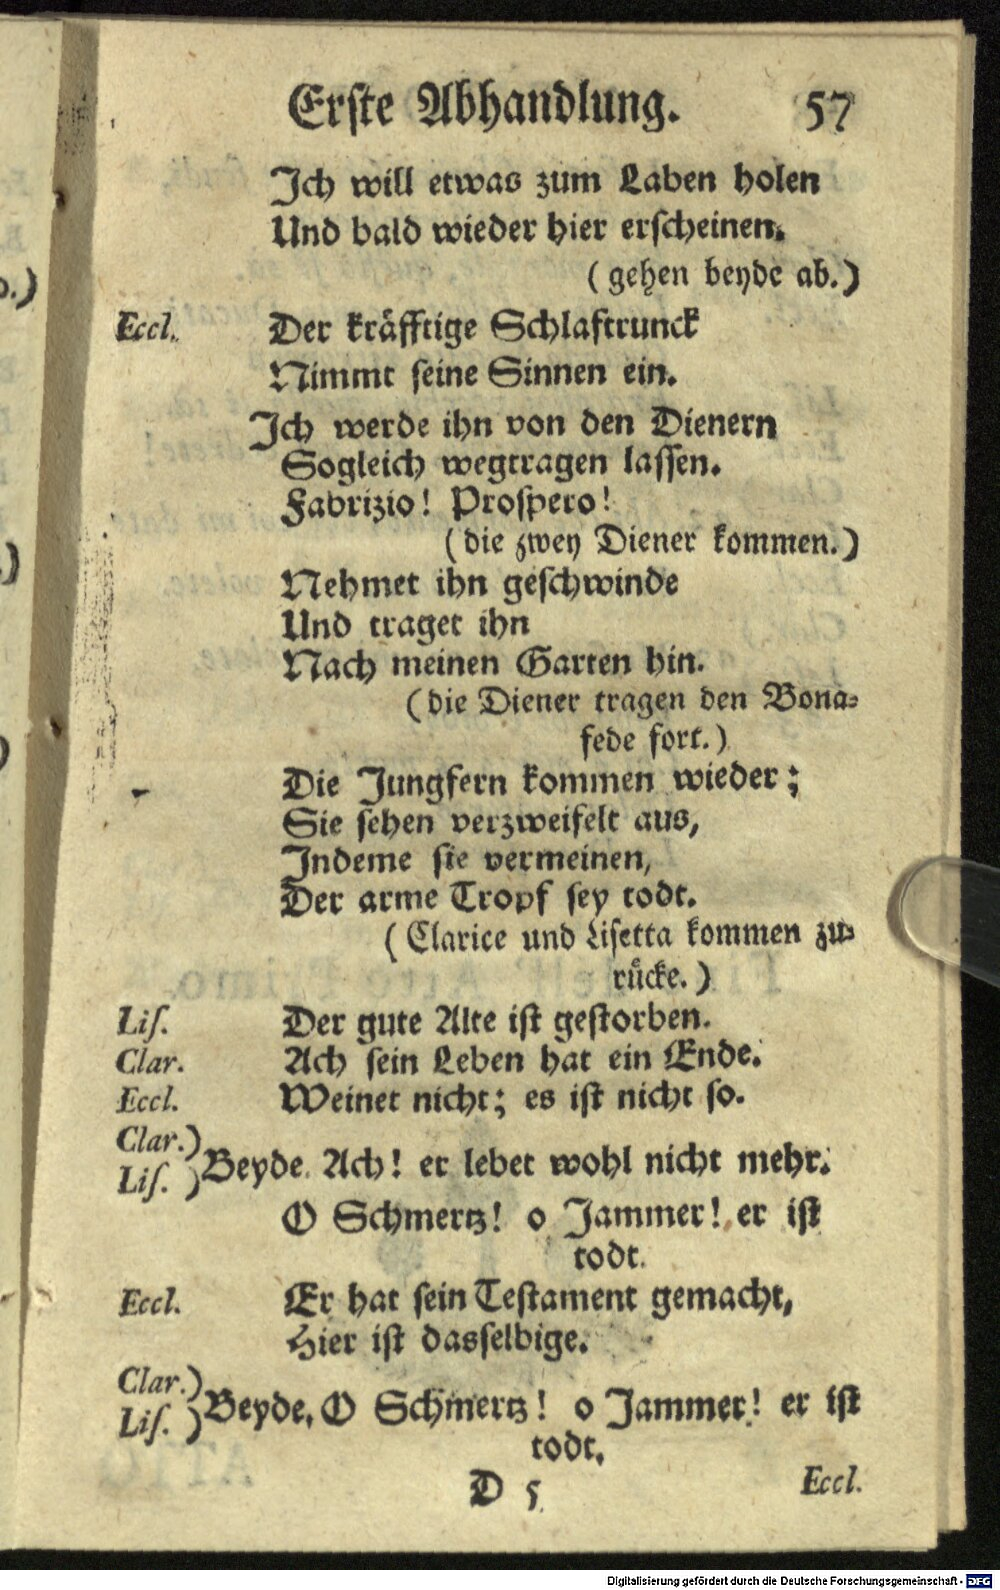 Erste Abhandlung. 57
Ich will etwas zum Laben holen
Und bald wieder hier erscheinen.
(gehen beyde ab.)
Eccl. Der kräfftige Schlaftrunck
Nimmt seine Sinnen ein.
Ich werde ihn von den Dienern
Sogleich wegtragen lassen.
Fabrizio! Prospero!
(die zwey Diener kommen.)
Nehmet ihn geschwinde
Und traget ihn
Nach meinen Garten hin.
(die Diener tragen den Bona-
fede fort.)
Die Jungfern kommen wieder;
Sie sehen verzweifelt aus,
Indeme sie vermeinen,
Der arme Tropf sey todt.
(Clarice und Lisetta kommen zu-
rücke.)
Lis. Der gute Alte ist gestorben.
Clar. Ach sein Leben hat ein Ende.
Eccl. Weinet nicht; es ist nicht so.
Clar.)
Lis. ) Beyde. Ach! er lebet wohl nicht mehr.
O Schmertz! o Jammer! er ist
todt.
Eccl. Er hat sein Testament gemacht,
Hier ist dasselbige.
Clar.)
Lis. ) Beyde. O Schmertz! o Jammer! er ist
todt.
D 5 Eccl.
Digitalisierung gefördert durch die Deutsche Forschungsgemeinschaft - DFG